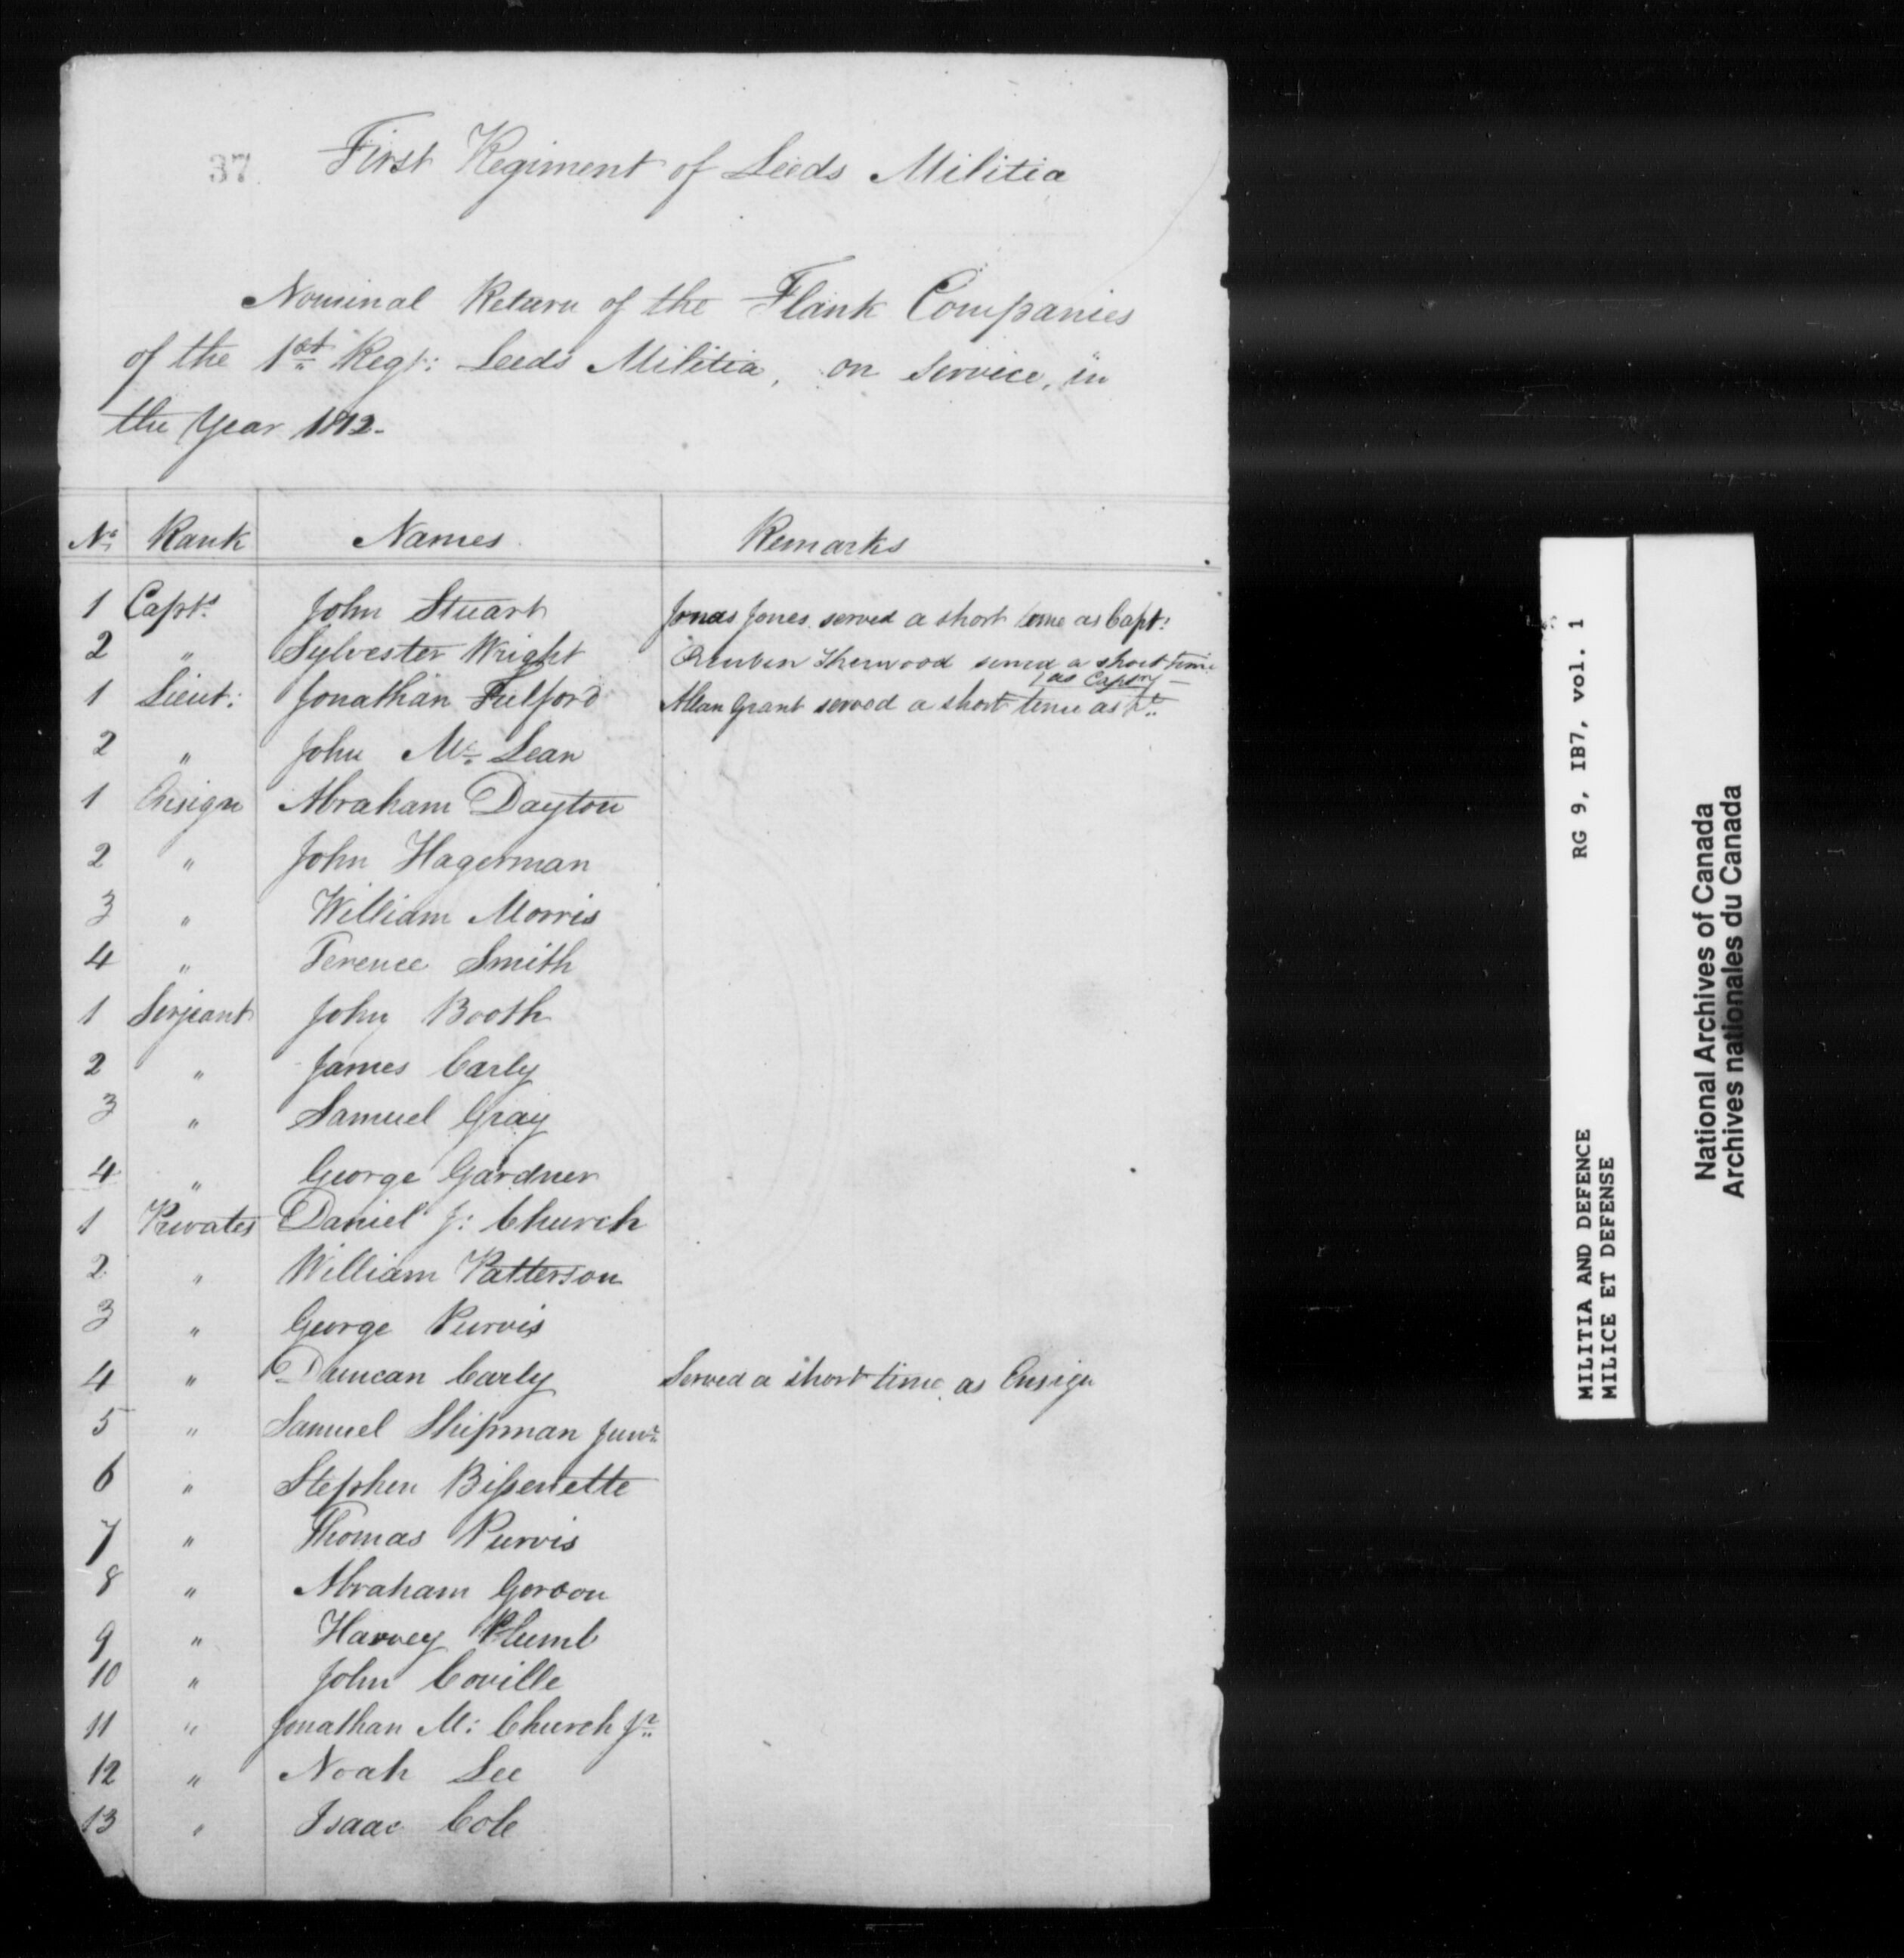 37
First Regiment of Leeds Militia
Nominal Return of the Flank Companies
of the 1st Regt: Leeds Militia, on Service, in
the Year 1812-
No Rank Names Remarks
1 Capts John Stuart Jonas Jones served a short time as Capt:
2 " Sylvester Wright Reuben Sherwood served a short time
as Capt
1 Lieut: Jonathan Fulford Allan Grant served a short time as Lt
2 " John Mc Lean
1 Ensign Abraham Dayton
2 " John Hagerman
3 " William Morris
4 " Terence Smith
1 Serjeant John Booth
2 " James Carly
3 " Samuel Gray
4 " George Gardner
1 Privates Daniel J: Church
2 " William Patterson
3 " George Purvis
4 " Duncan Carly Served a short time as Ensign
5 " Samuel Shipman Junr
6 " Stephen Bissenette
7 " Thomas Purvis
8 " Abraham Gordon
9 " Harvey Plumb
10 " John Coville
11 " Jonathan M: Church Jr
12 " Noah Lee
13 " Isaac Cole
MILITIA AND DEFENCE RG 9, IB7, vol. 1
MILICE ET DEFENSE
National Archives of Canada
Archives nationales du Canada